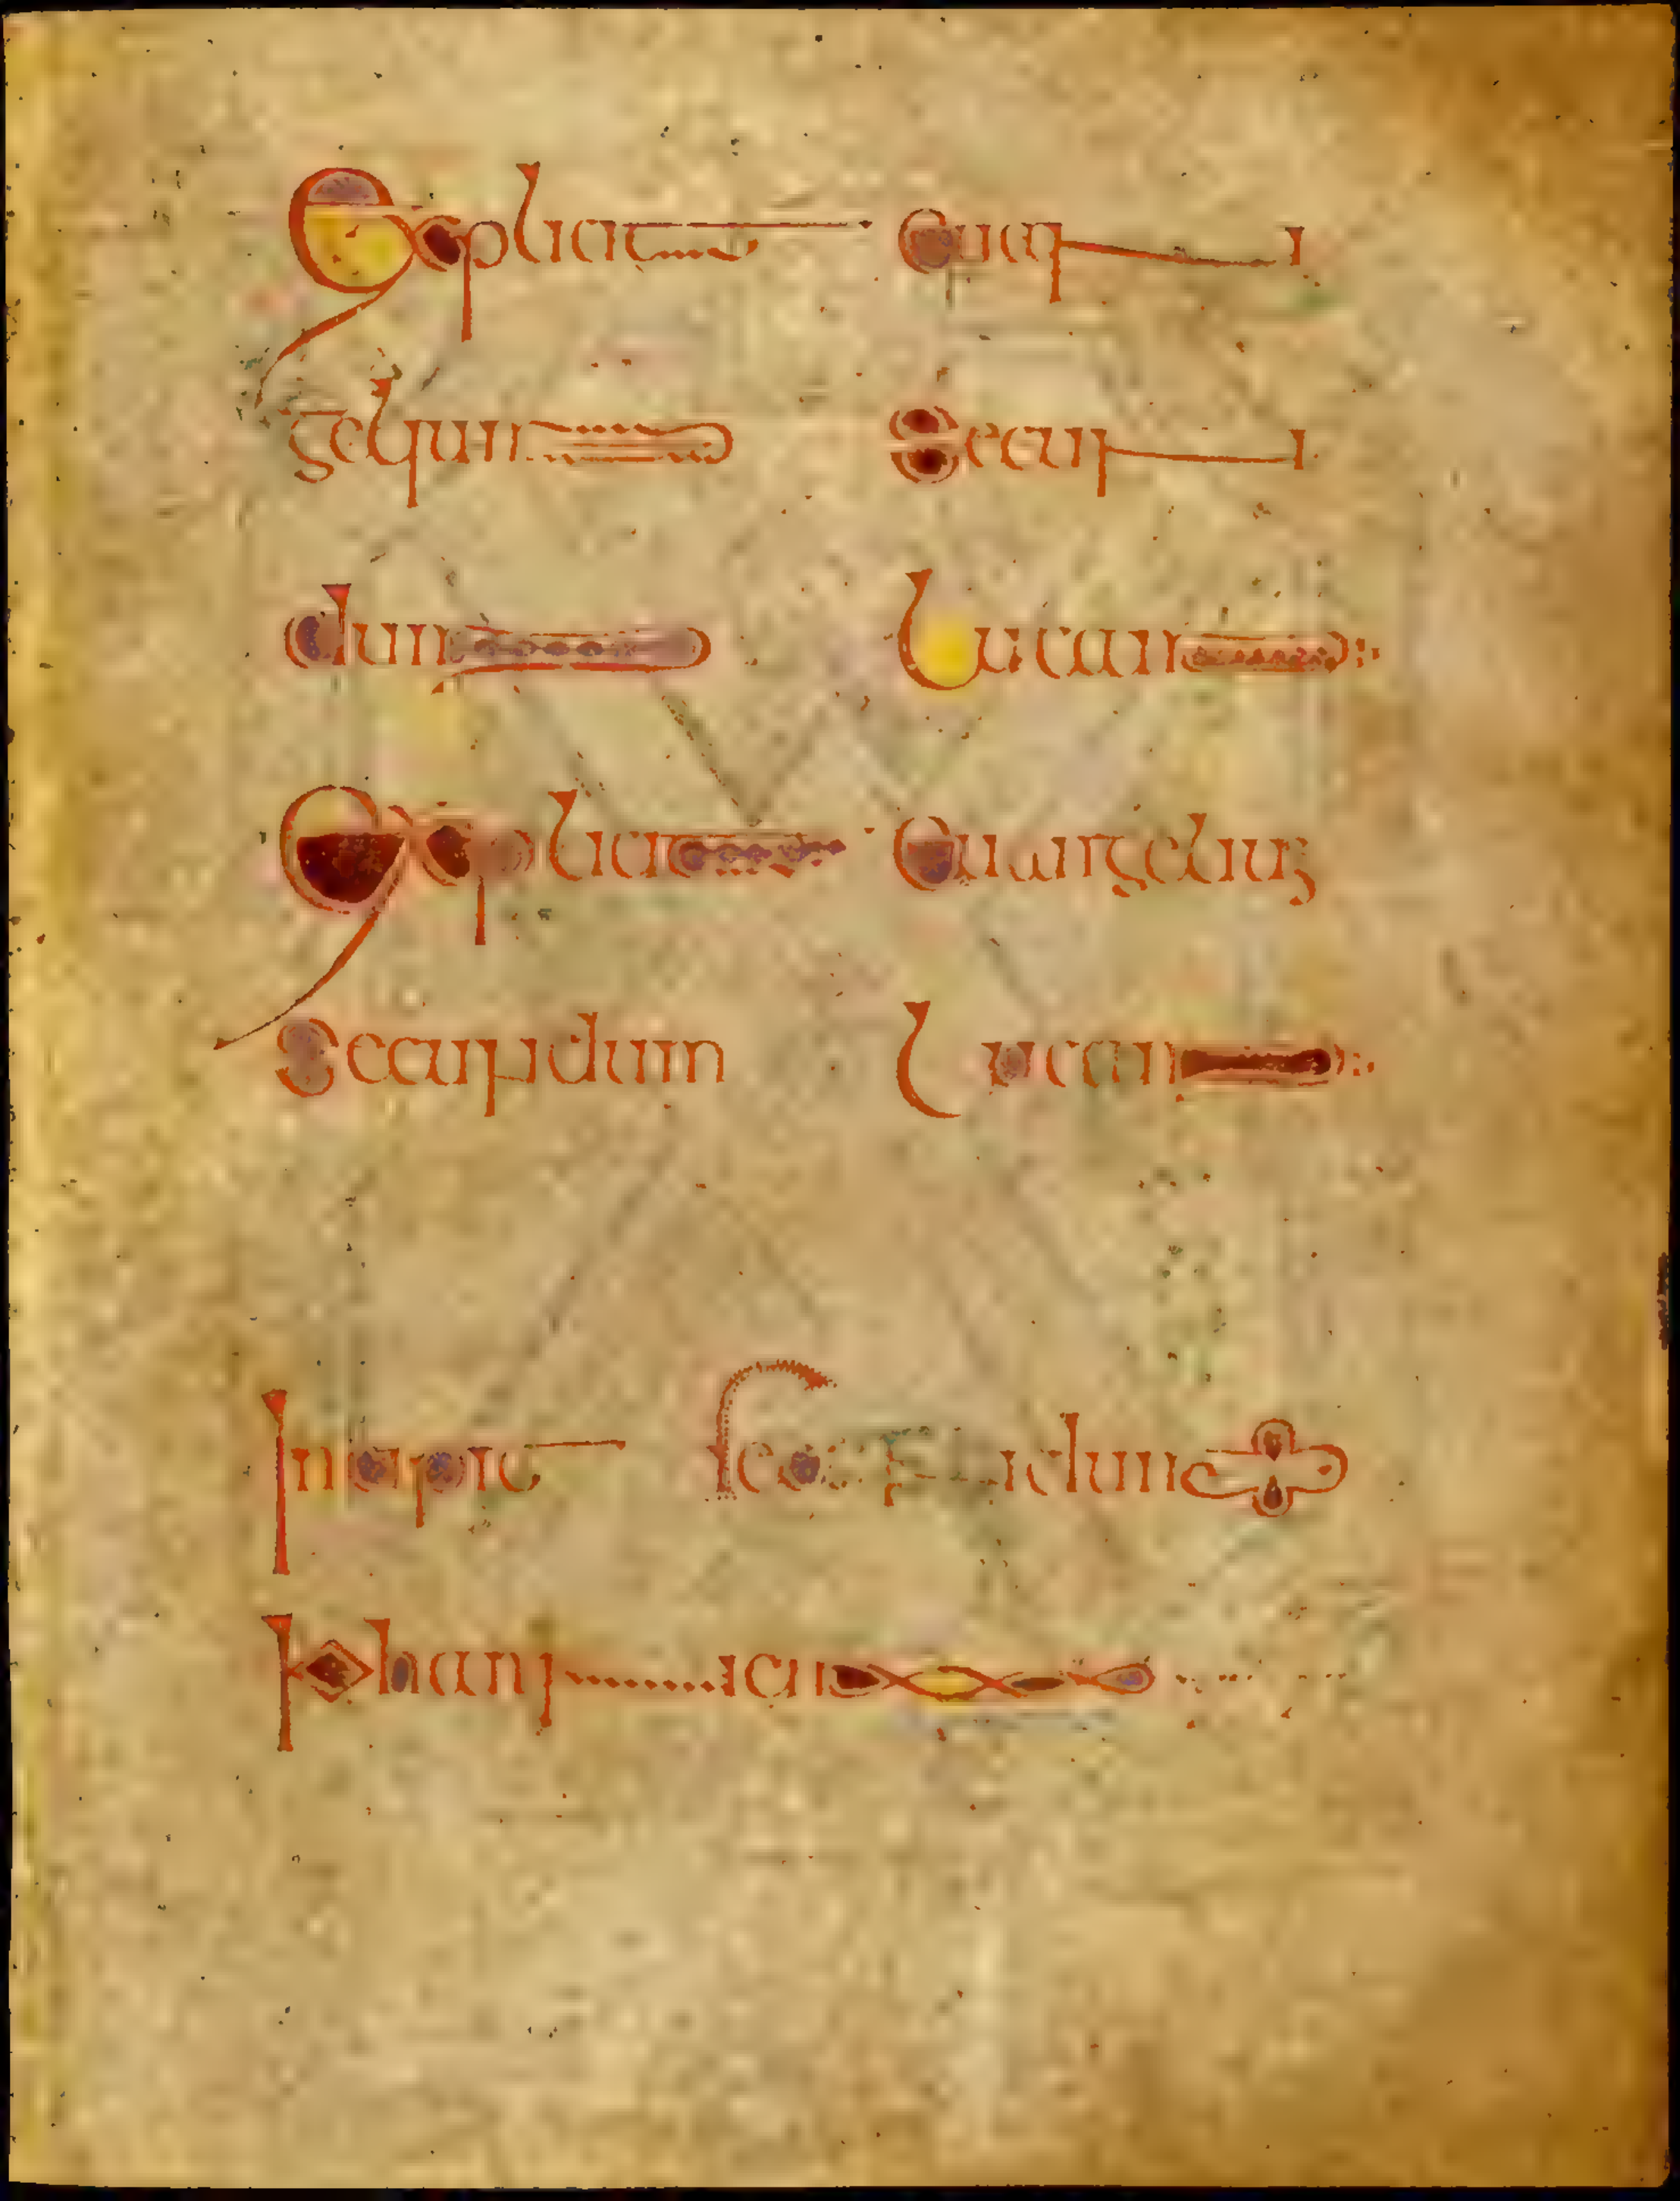 Explicit Euan
gelium Secun
dum Lucam
Explicit Euangelium
Secundum Lucam
Incipit secundum
Iohannem